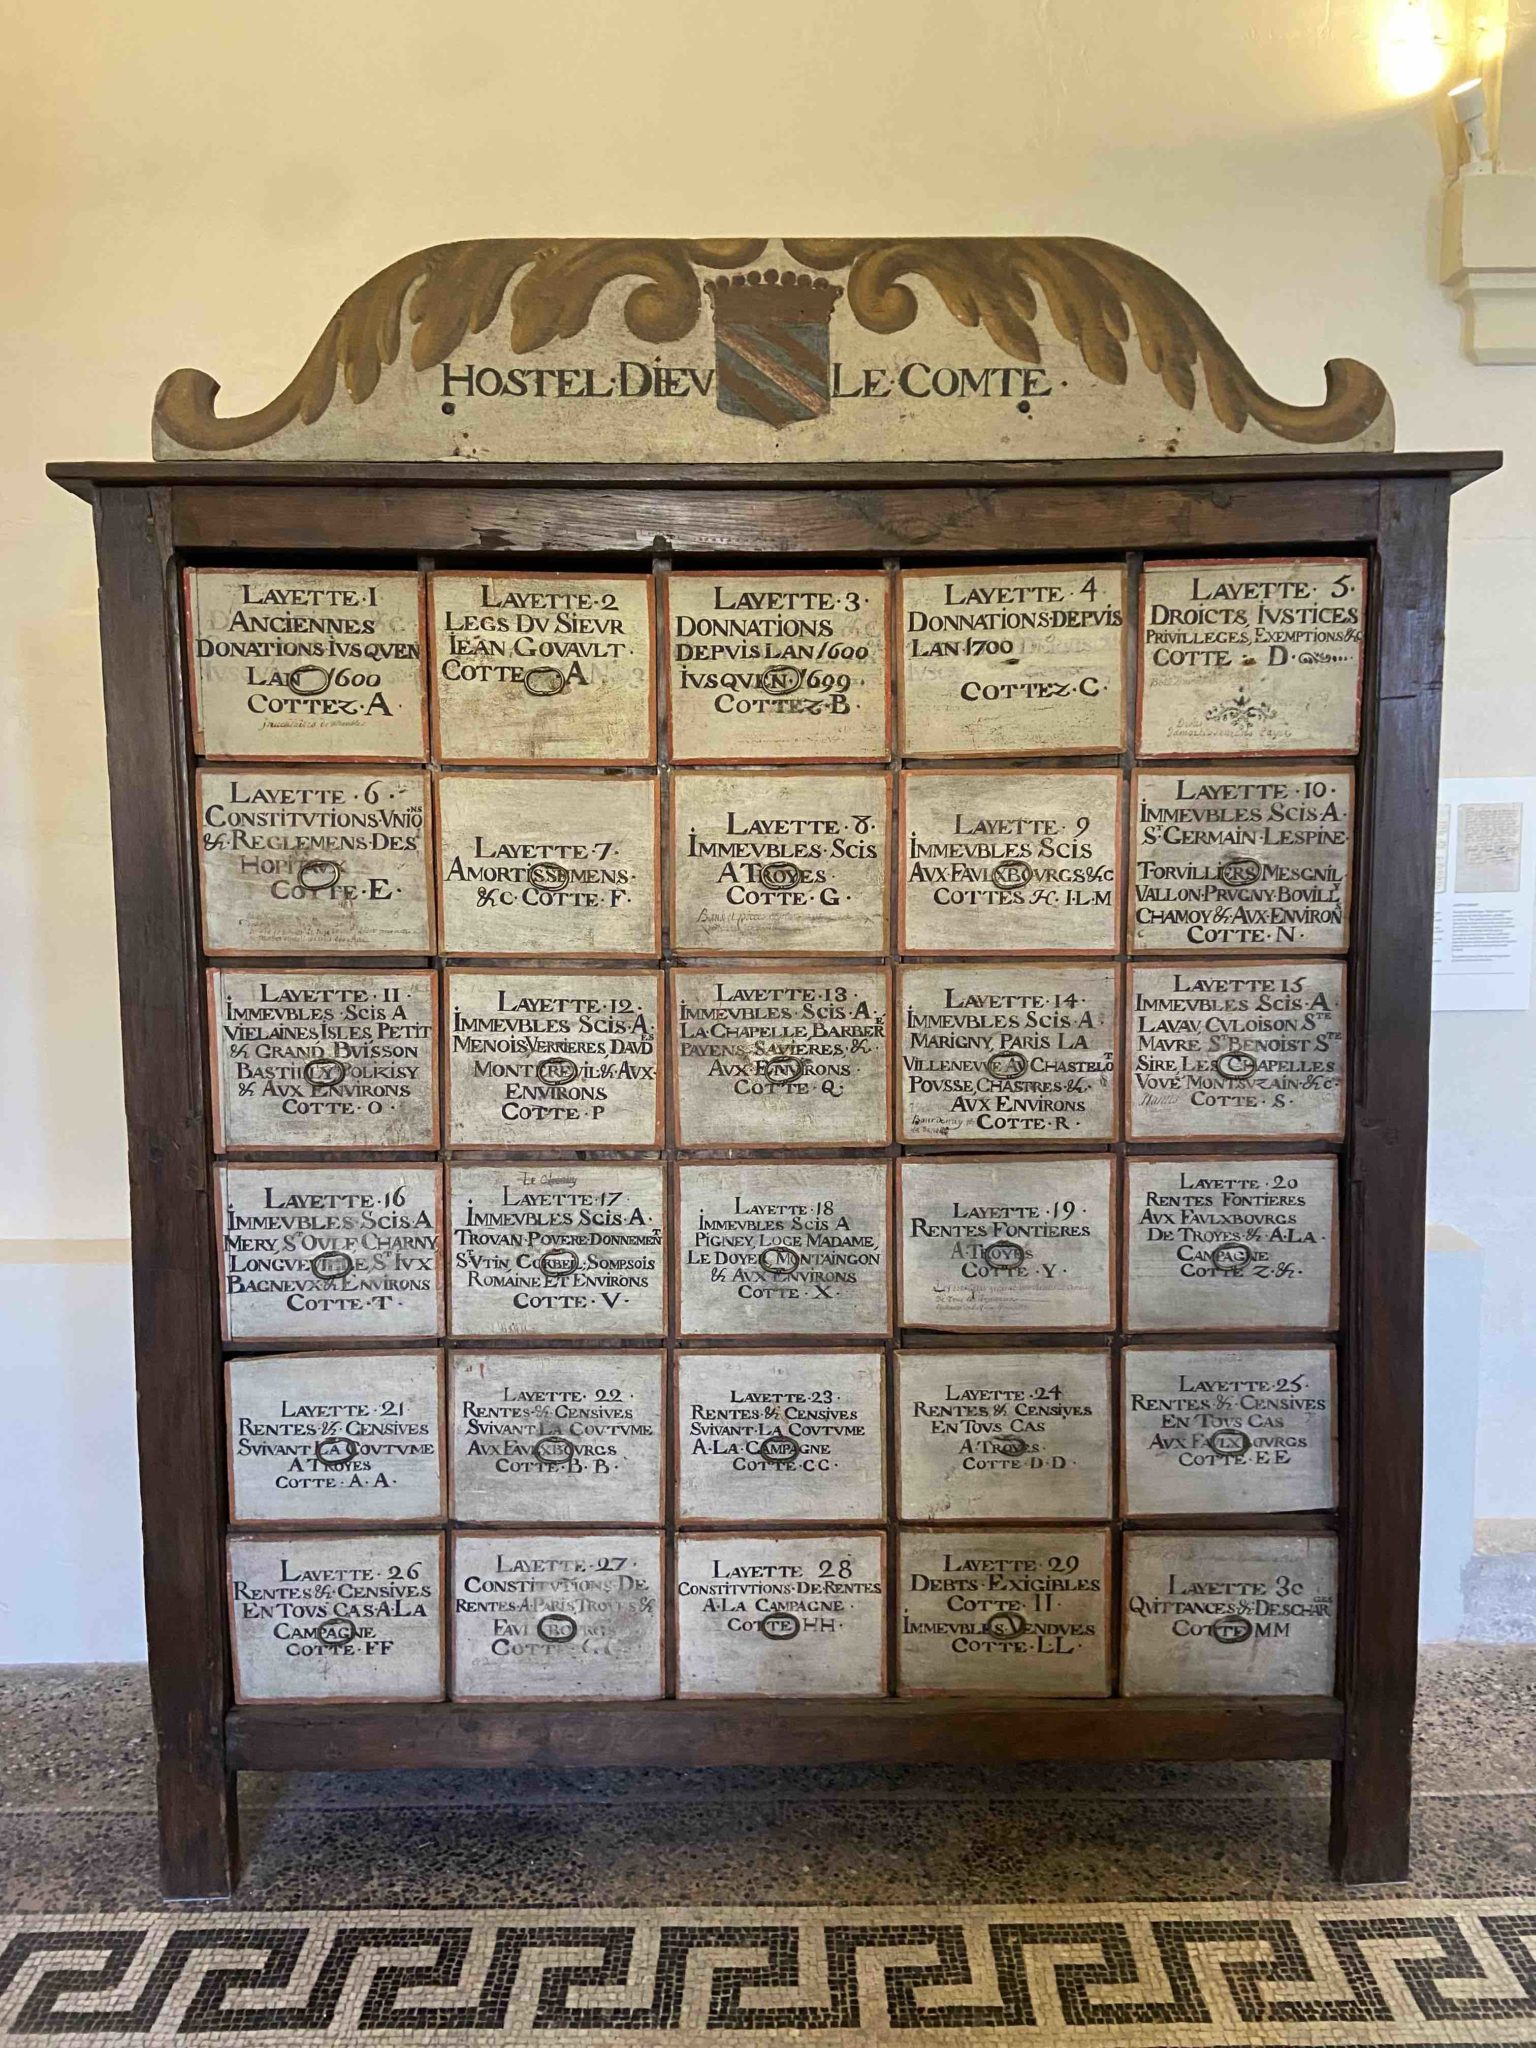 HOSTEL·DIEV LE·COMTE·
LAYETTE·1
ANCIENNES
DONATIONS·IVSQVEN
LAN 1600
COTTEZ·A·
LAYETTE·2
LEGS DV SIEVR
IEAN, GOVAULT·
COTTE A
LAYETTE·3·
DONNATIONS
DEPVIS LAN 1600
IVSQVEN·1699·
COTTEZ·B·
LAYETTE·4
DONNATIONS·DEPVIS
LAN·1700
COTTEZ·C·
LAYETTE·5·
DROICTS, IVSTICES
PRIVILLEGES, EXEMPTIONS &c
COTTE · D·
LAYETTE·6·
CONSTITVTIONS·VNIONS
&·REGLEMENS·DES
HOPITAUX
COTTE·E·
LAYETTE·7·
AMORTISSEMENS·
&C·COTTE·F·
LAYETTE·8·
IMMEVBLES·SCIS
A TROYES
COTTE·G·
LAYETTE·9
IMMEVBLES SCIS
AVX·FAVLXBOVRGS·&c
COTTES H·I·L·M
LAYETTE·10·
IMMEVBLES SCIS·A·
ST GERMAIN·LESPINE·
TORVILLIERS MESGNIL·
VALLON·PRVGNY·BOVILLS
CHAMOY &·AVX·ENVIRON
COTTE·N·
LAYETTE·11·
IMMEVBLES·SCIS A
VIELAINES, ISLES, PETIT
& GRAND BVISSON
BASTILLY POLKISY
& AVX ENVIRONS
COTTE·O·
LAYETTE·12·
IMMEVBLES SCIS·A·
MENOIS VERRIERES, DAVD
MONTREVIL·&·AVX·
ENVIRONS
COTTE·P
LAYETTE·13·
IMMEVBLES·SCIS·A·
LA·CHAPELLE, BARBEREY
PAYENS·SAVIERES·&·
AVX·ENVIRONS·
COTTE·Q·
LAYETTE·14·
IMMEVBLES SCIS·A·
MARIGNY, PARIS LA
VILLENEVVE AV CHASTELOT
POVSSE, CHASTRES·&·
AVX ENVIRONS
COTTE·R·
LAYETTE 15
IMMEVBLES SCIS·A·
LAVAV, CVLOISON STE
MAVRE ST BENOIST STE
SIRE, LES CHAPELLES
VOVÉ MONTSVZAIN·&c·
COTTE·S·
LAYETTE·16
IMMEVBLES·SCIS A
MERY, ST OVLF, CHARNY,
LONGVEVILLE ST IVX
BAGNEVX·&·ENVIRONS
COTTE·T·
LAYETTE·17·
IMMEVBLES SCIS·A·
TROVAN·POVERE·DONNEMENT
ST VTIN, CORBEIL·SOMPSOIS
ROMAINE ET ENVIRONS
COTTE·V·
LAYETTE·18
IMMEVBLES SCIS A
PIGNEY, LOGE MADAME,
LE DOYER, MONTAINGON
& AVX ENVIRONS
COTTE·X·
LAYETTE·19·
RENTES FONTIERES
A·TROYES
COTTE·Y·
LAYETTE·20
RENTES FONTIERES
AVX FAVLXBOVRGS
DE TROYES·&·A·LA·
CAMPAGNE
COTTE Z·&·
LAYETTE·21·
RENTES·&·CENSIVES
SVIVANT LA COVTVME
A TROYES
COTTE·A·A·
LAYETTE·22·
RENTES·&·CENSIVES
SVIVANT LA COVTVME
AVX·FAVLXBOVRGS
COTTE·B·B·
LAYETTE·23·
RENTES·&·CENSIVES
SVIVANT·LA COVTVME
A·LA·CAMPAGNE
COTTE·CC·
LAYETTE·24
RENTES & CENSIVES
EN TOVS CAS
A·TROYES·
COTTE·D·D·
LAYETTE·25·
RENTES·&·CENSIVES
EN TOVS CAS
AVX FAVLXBOVRGS
COTTE·EE
LAYETTE·26
RENTES·&·CENSIVES
EN TOVS CAS·A·LA
CAMPAGNE
COTTE·FF
LAYETTE·27·
CONSTITVTIONS·DE
RENTES·A·PARIS, TROYES &
LAYETTE 28
CONSTITVTIONS·DE·RENTES
A·LA CAMPAGNE·
COTTE·HH·
LAYETTE·29
DEBTS·EXIGIBLES
COTTE·II·
IMMEVBLES·VENDVES
COTTE·LL·
LAYETTE 30
QVITTANCES·&·DESCHARGES
COTTE·MM